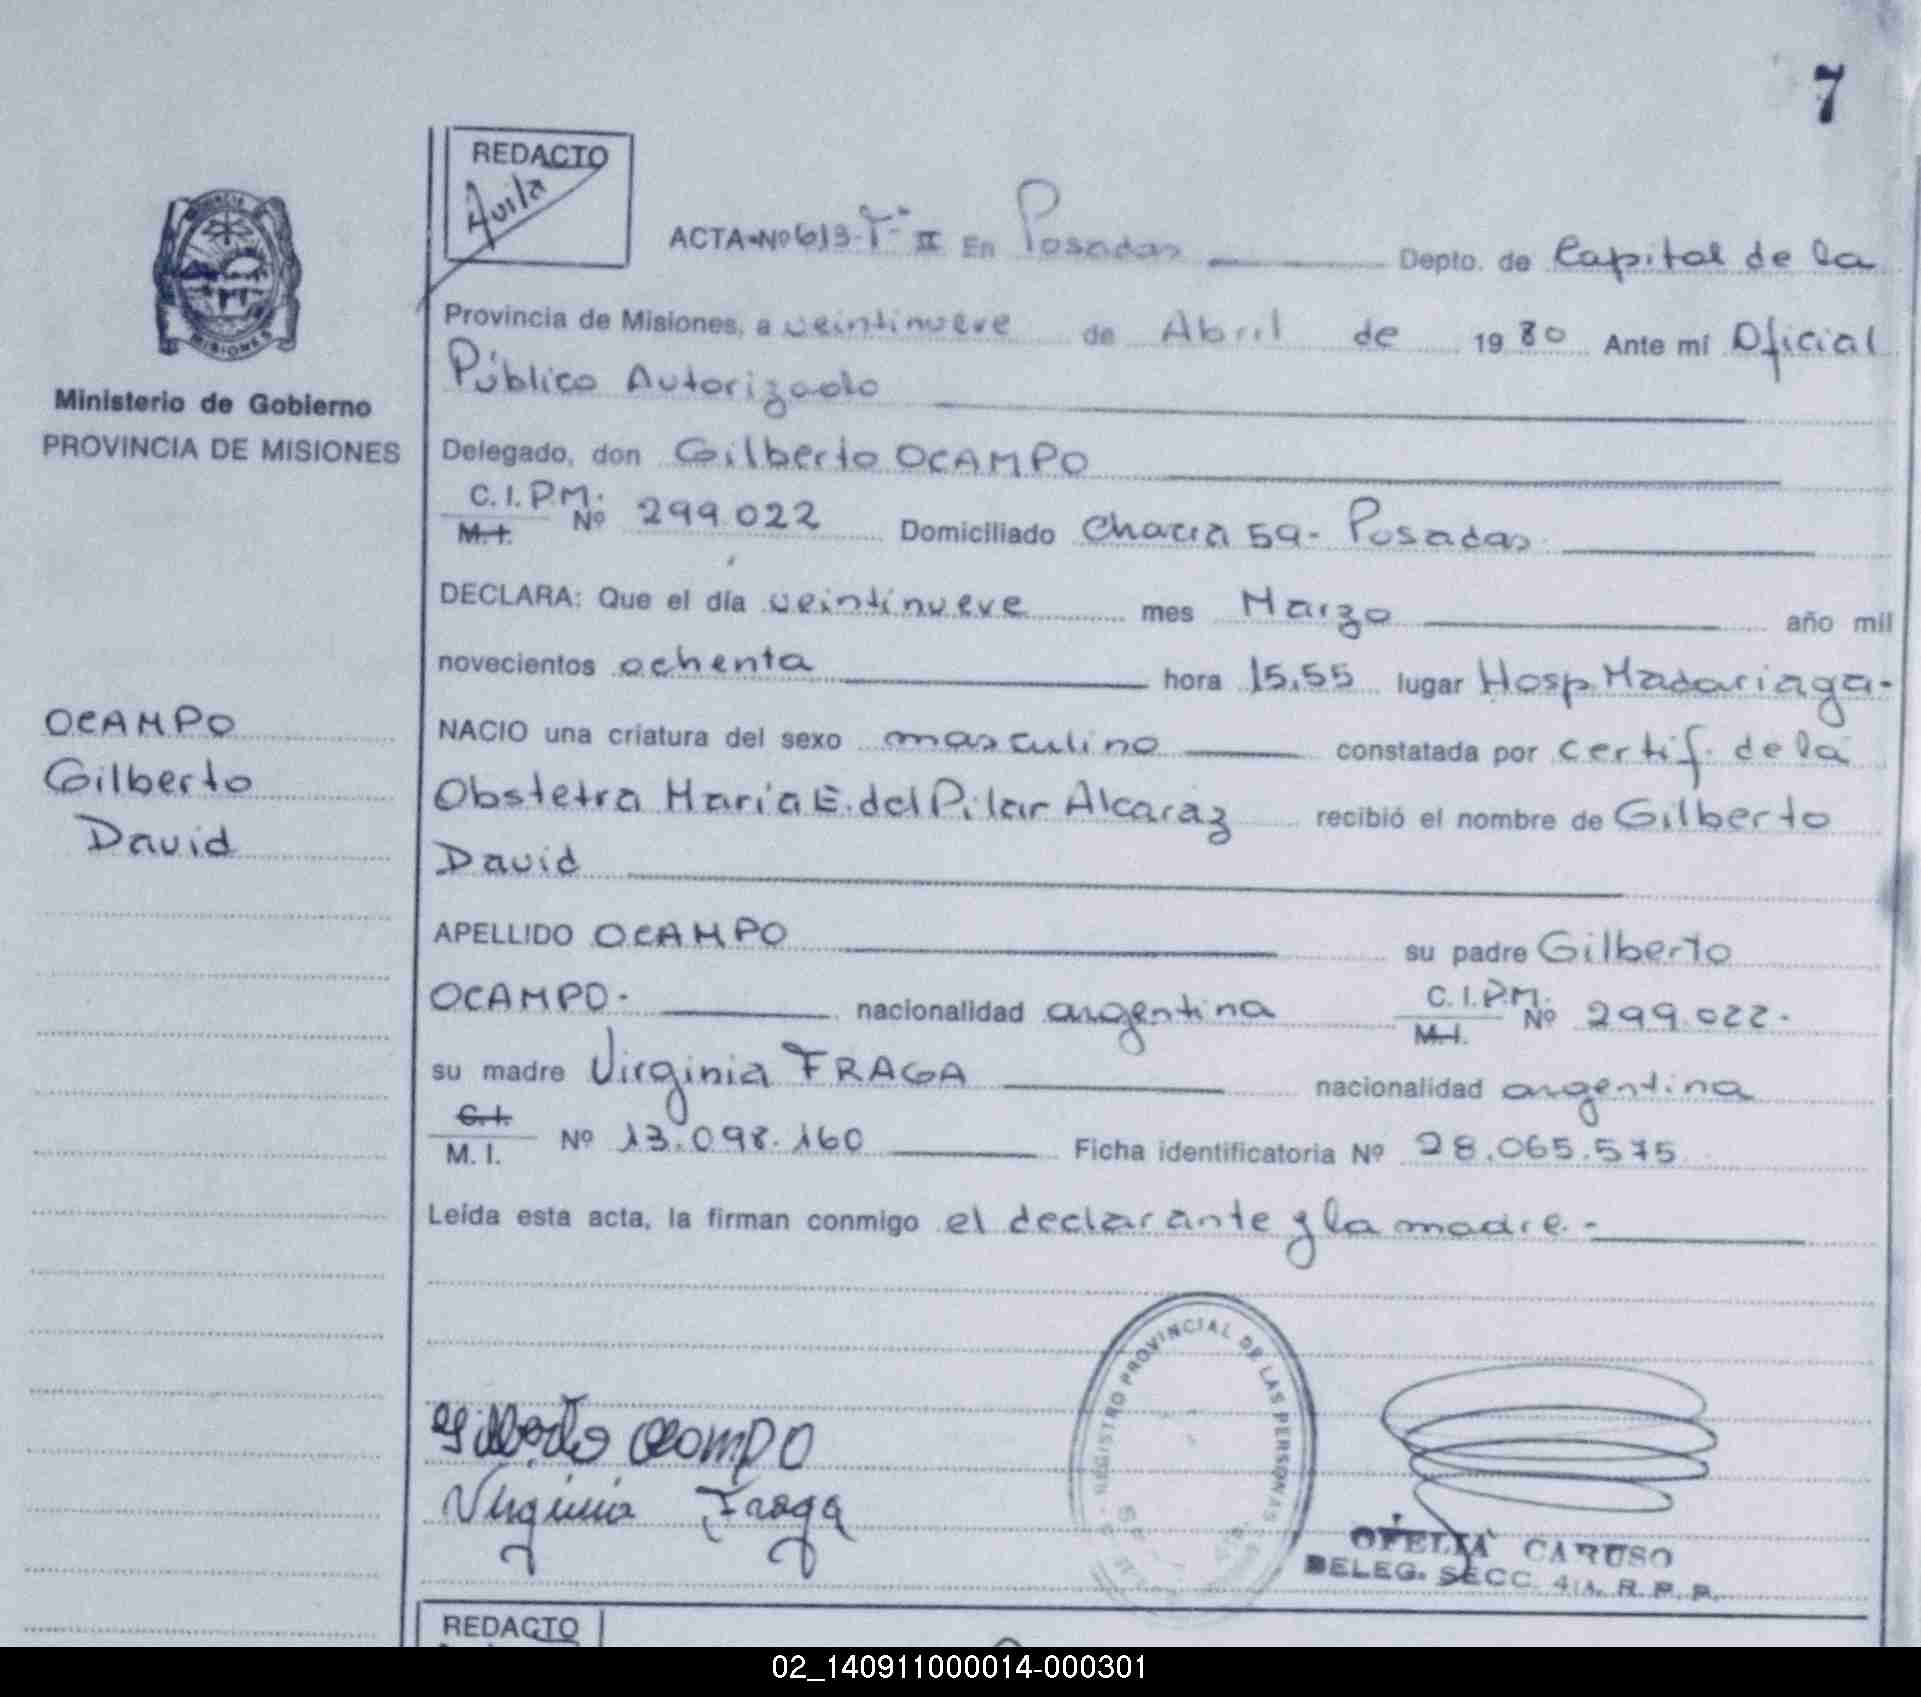 7
REDACTO
Avila
ACTA Nº 613-Tº II En Posadas Depto. de Capital de la
Provincia de Misiones, a veintinueve de Abril de 1980 Ante mí Oficial
Público Autorizado
Ministerio de Gobierno
PROVINCIA DE MISIONES
Delegado, don Gilberto OCAMPO
C. I. P.M.
M. I. Nº 299.022 Domiciliado Chacra 59- Posadas
DECLARA: Que el día veintinueve mes Marzo año mil
novecientos ochenta hora 15,55 lugar Hosp. Madariaga-
OCAMPO
Gilberto
David
NACIO una criatura del sexo masculino constatada por certif. de la
Obstetra María E. del Pilar Alcaraz recibió el nombre de Gilberto
David
APELLIDO OCAMPO su padre Gilberto
OCAMPO- nacionalidad argentina C. I. P.M.
M. I. Nº 299.022-
su madre Virginia FRAGA nacionalidad argentina
C. I.
M. I. Nº 13.098.160 Ficha identificatoria Nº 28.065.575
Leída esta acta, la firman conmigo el declarante y la madre.-
Gilberto Ocampo
Virginia Fraga
REGISTRO PROVINCIAL DE LAS PERSONAS
OFELIA CARUSO
DELEG. SECC. 4ta. R. P. P.
REDACTO
02_140911000014-000301